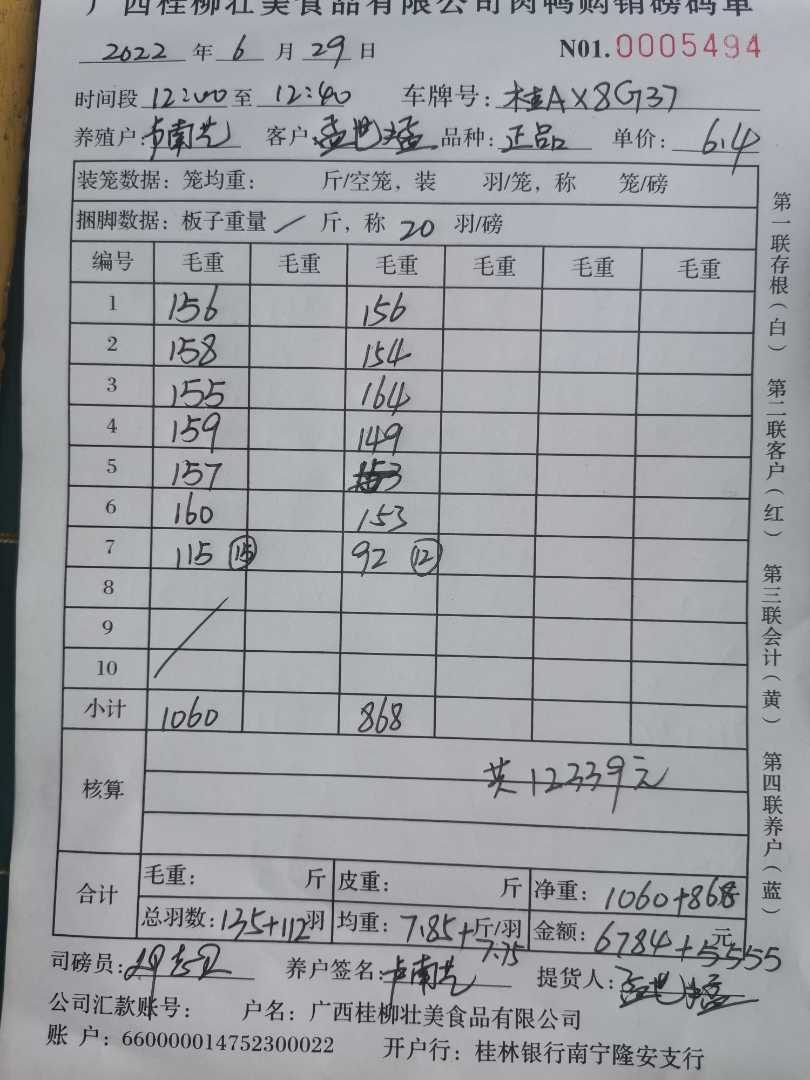 广西桂柳壮美食品有限公司肉鸭购销磅码单
2022 年 6 月 29 日 N01. 0005494
时间段 12:00 至 12:40 车牌号: 桂AX8G37
养殖户: 卢南艺 客户: 孟世猛 品种: 正品 单价: 6.4
装笼数据: 笼均重: 斤/空笼, 装 羽/笼, 称 笼/磅
捆脚数据: 板子重量 / 斤, 称 20 羽/磅
编号 毛重 毛重 毛重 毛重 毛重 毛重
1 156 156
2 158 154
3 155 164
4 159 149
5 157
6 160 153
7 115 ⑮ 92 ⑫
8
9
10
小计 1060 868
核算 共12339元
合计 毛重: 斤 皮重: 斤 净重: 1060+868
总羽数: 135+112 羽 均重: 7.85+7.75 斤/羽 金额: 6784+5555 元
司磅员: 养户签名: 卢南艺 提货人: 孟世猛
公司汇款账号: 户名: 广西桂柳壮美食品有限公司
账 户: 660000014752300022 开户行: 桂林银行南宁隆安支行
第一联存根(白) 第二联客户(红) 第三联会计(黄) 第四联养户(蓝)